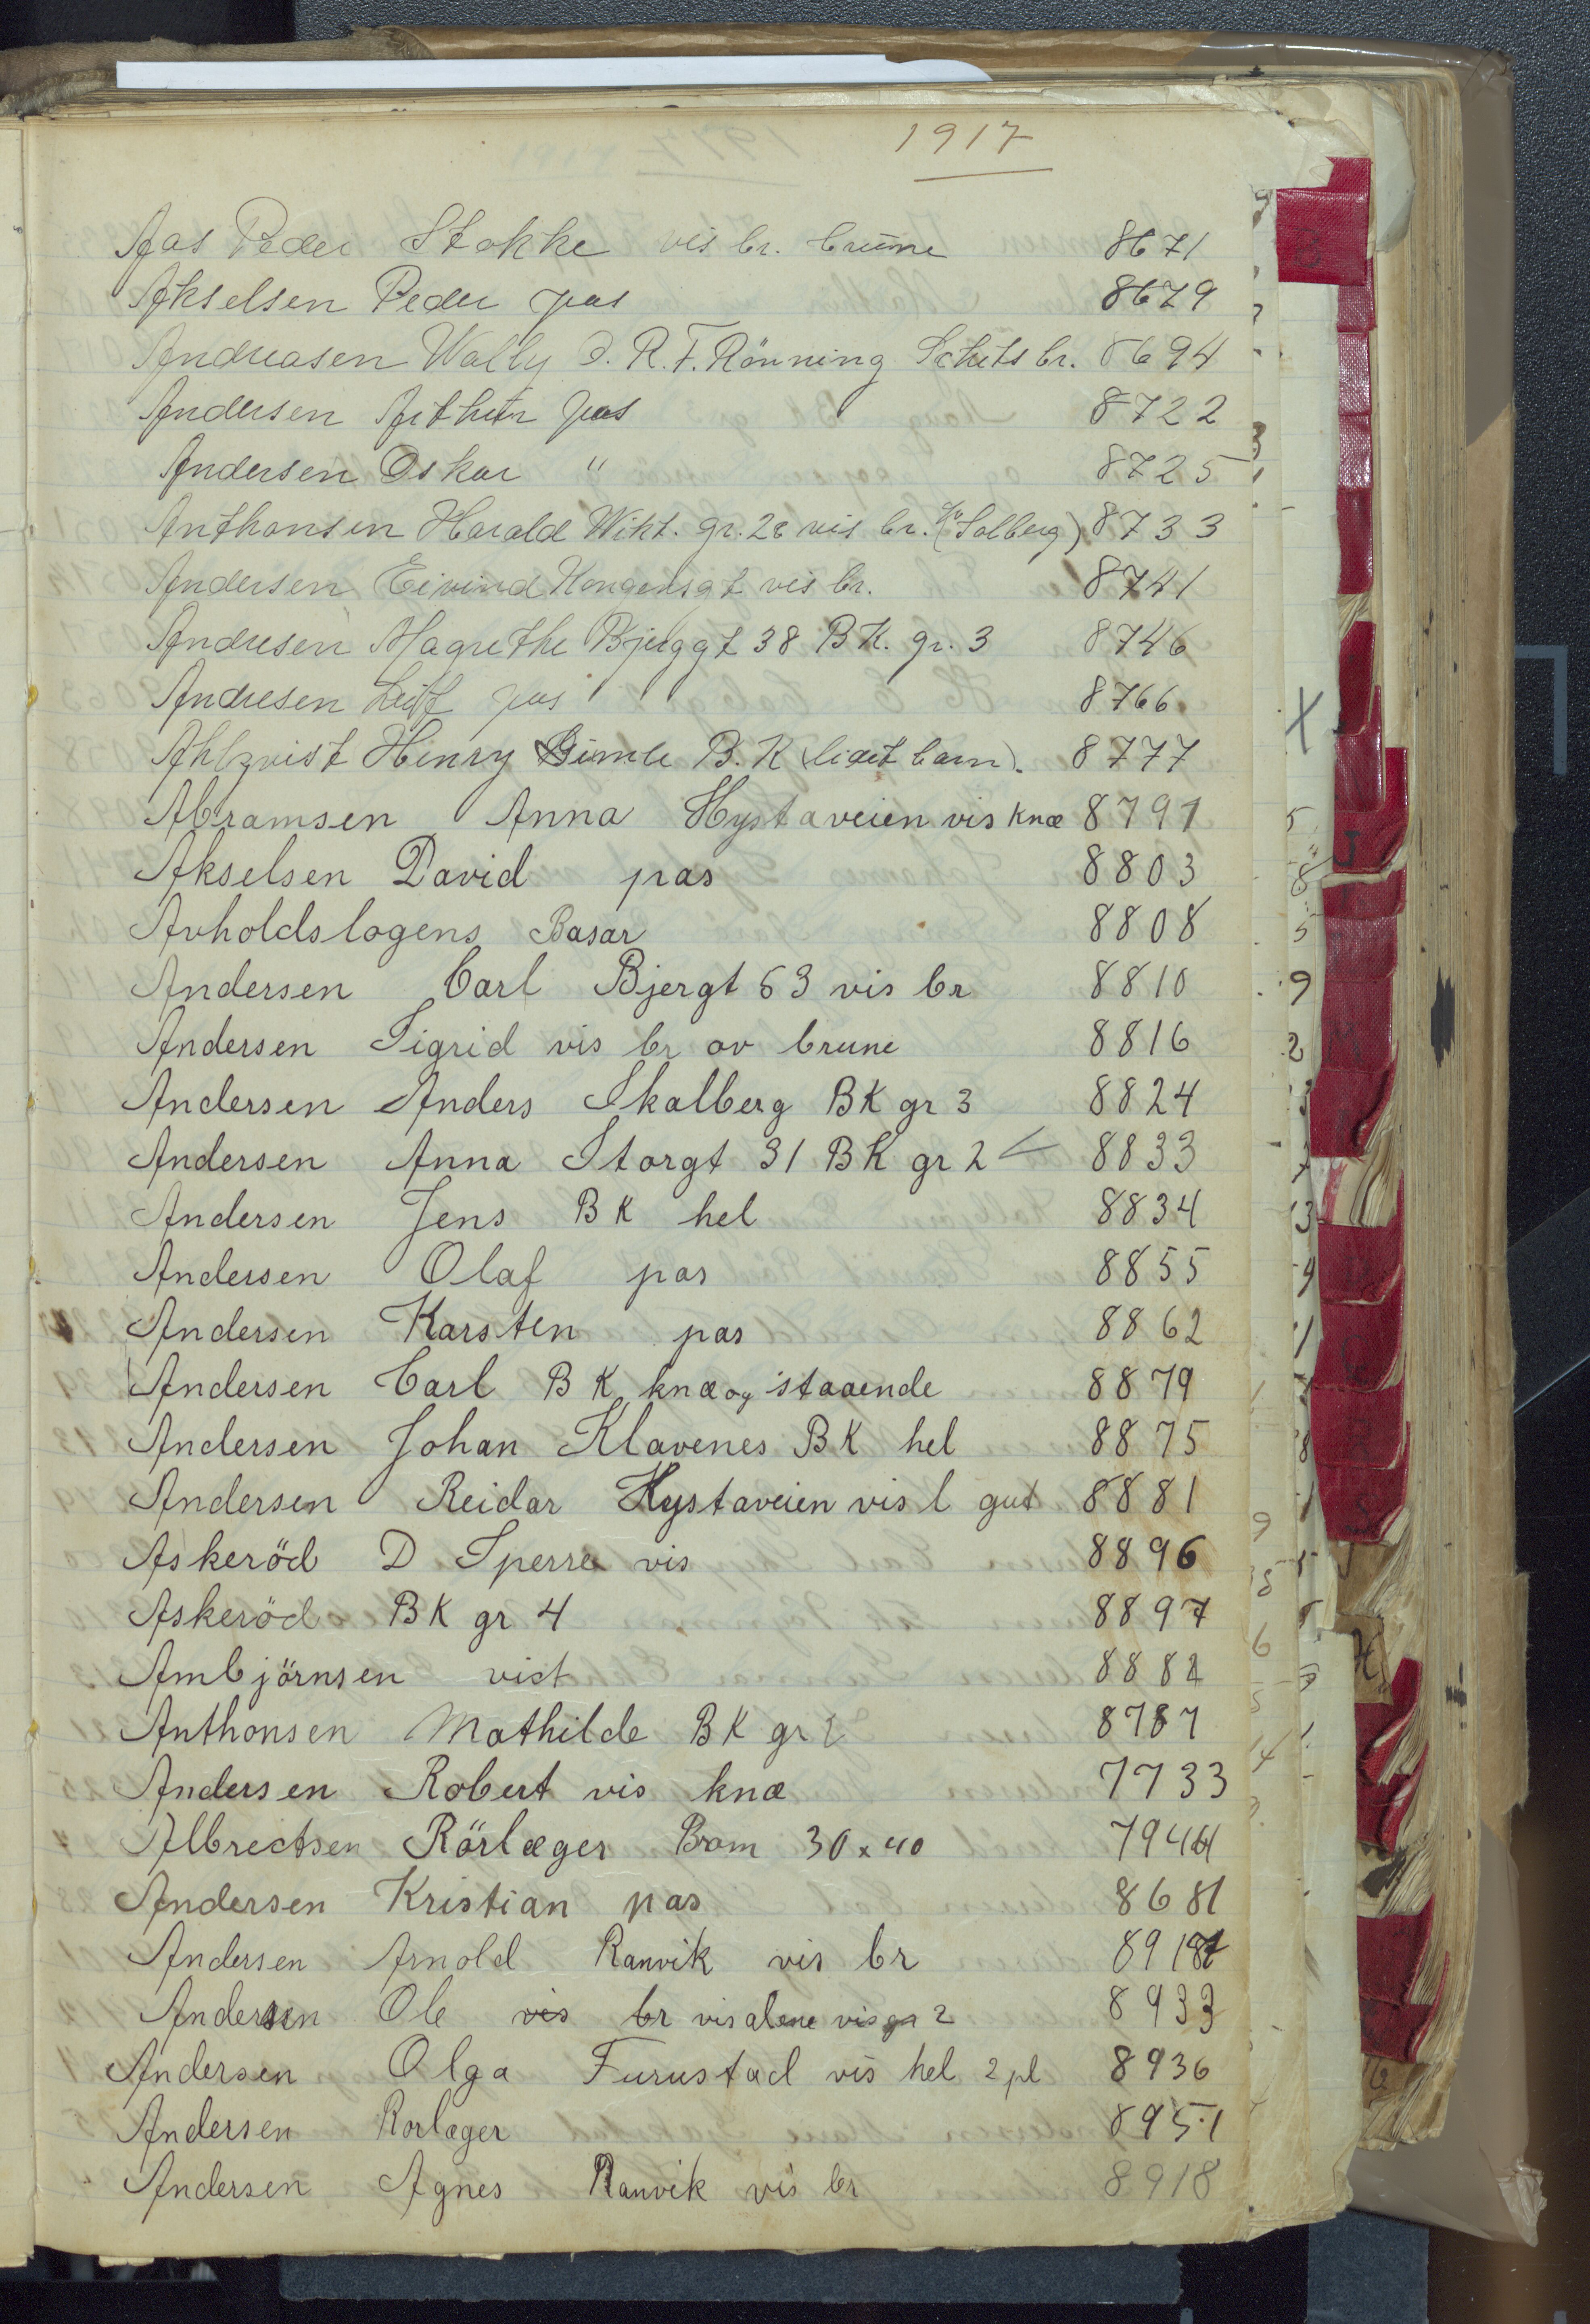 1917
Aas Peder Stokke vis br. brune 8671
Akselsen Peder pas 8679
Andreasen Wally D. R. F. Rönning Schits br. 8694
Andersen Arthur pas 8722
Andersen Oskar " 8725
Anthonsen Harald Wikt. gr. 28 vis br. (Solberg) 8733
Andersen Eivind Kongensgt vis br. 8741
Andresen Magrethe Bjerggt 38 BK. gr. 3 8746
Andresen Leif pas 8766
Ahlqvist Henry Gimle B.K (lidet barn). 8777
Abramsen Anna Hystaveien vis knæ 8791
Akselsen David pas 8803
Avholdslogens Basar 8808
Andersen Carl Bjergt 63 vis br 8810
Andersen Sigrid vis br av brune 8816
Andersen Anders Skalberg BK gr 3 8824
Andersen Anna Storgt 31 BK gr 2 8833
Andersen Jens BK hel 8834
Andersen Olaf pas 8855
Andersen Karsten pas 8862
Andersen Carl BK knæ og staaende 8879
Andersen Johan Klavenes BK hel 8875
Andersen Reidar Hystaveien vis l gut 8881
Askeröd D Sperre vis 8896
Askeröd BK gr 4 8897
Ambjörnsen vist 8882
Anthonsen Mathilde BK gr 2 8787
Andersen Robert vis knæ 7733
Albrectsen Rörlæger Brom 30x40 7944
Andersen Kristian pas 8681
Andersen Arnold Ranvik vis br
Andersen Ole vis br vis alene vis gr 2 8933
Andersen Olga Furustad vis hel 2 pl 8936
Andersen Rorlæger 8951
Andersen Agnes Ranvik vis br 8918